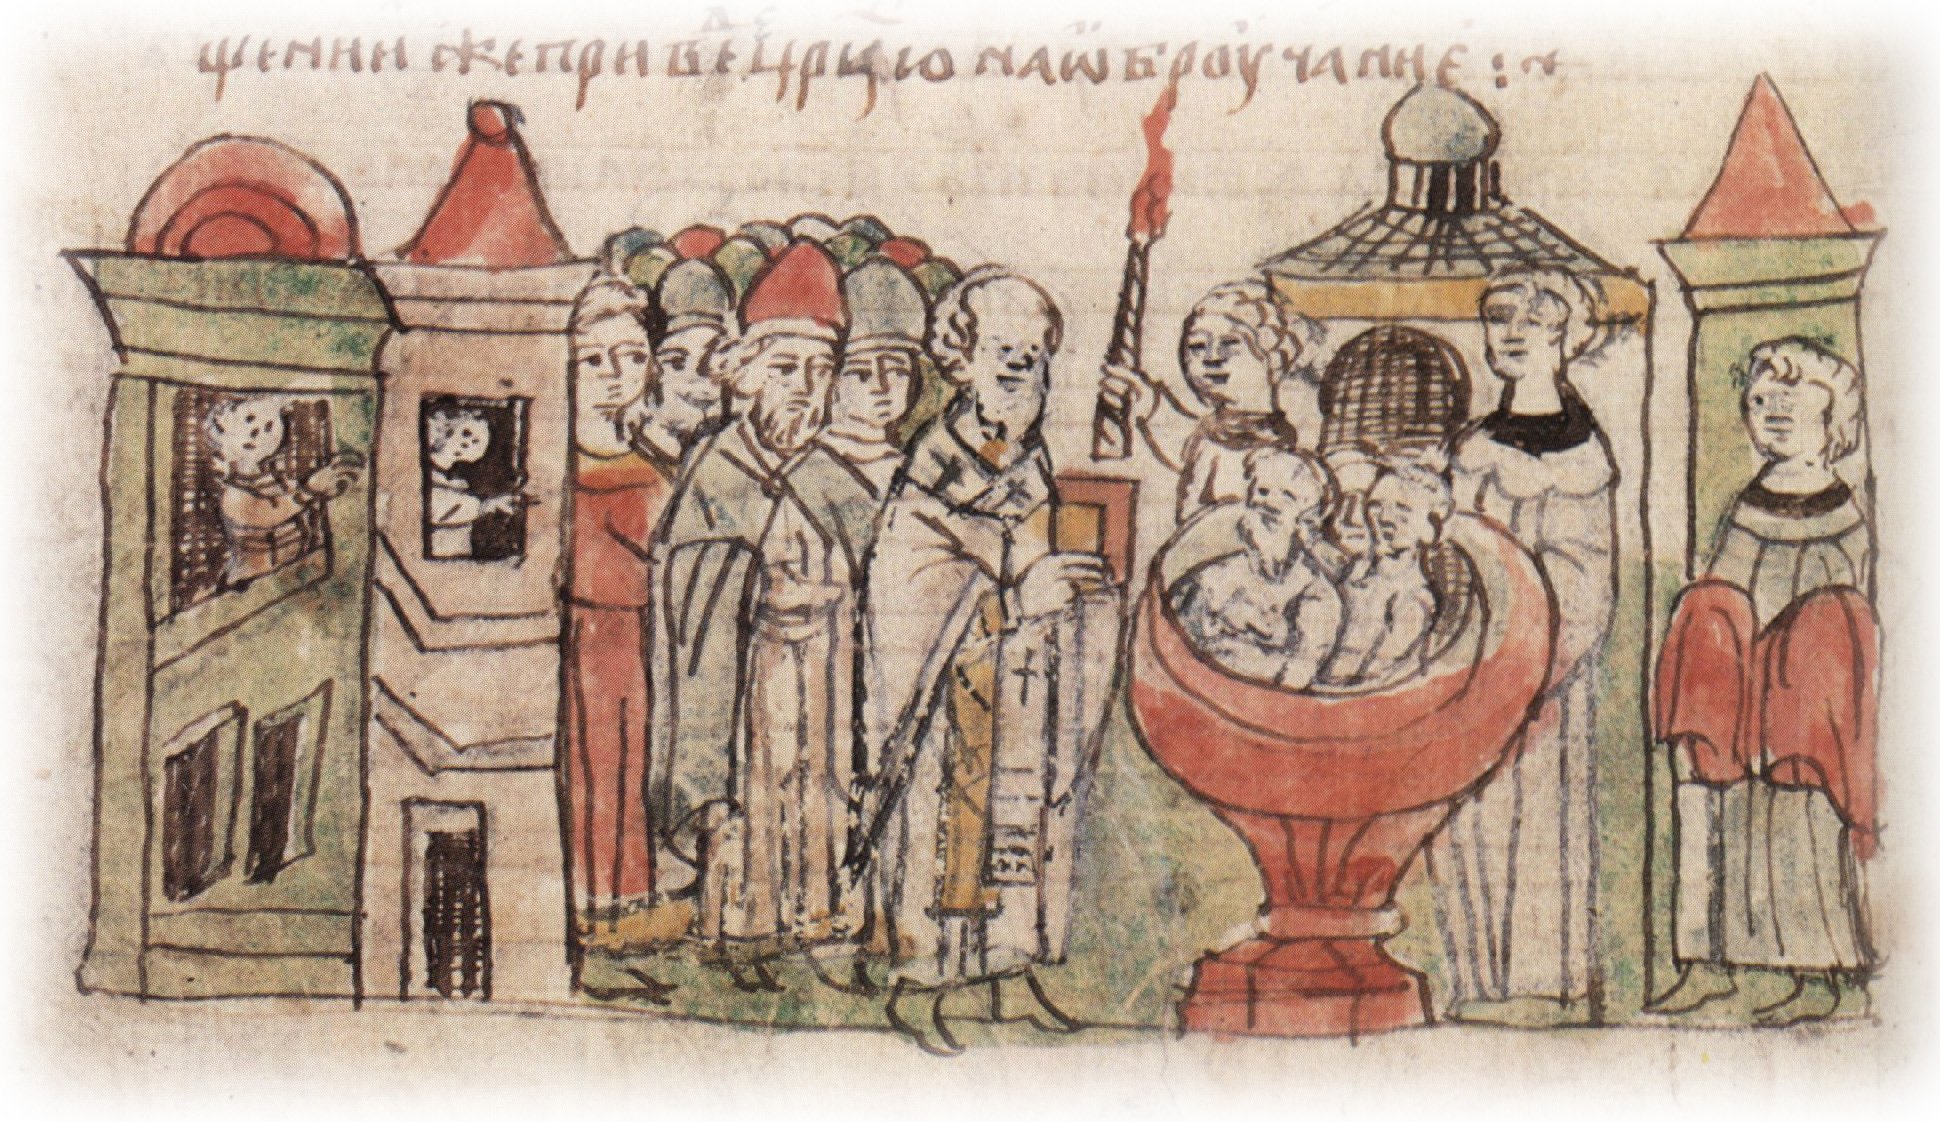 щении же приве црцю на ѡбрꙋчание :~